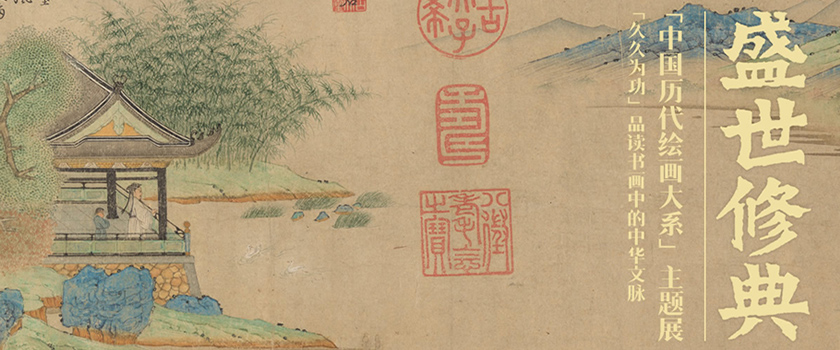 盛世修典
「中国历代绘画大系」主题展
「久久为功」品读书画中的中华文脉
壽
八徵耄念之寶